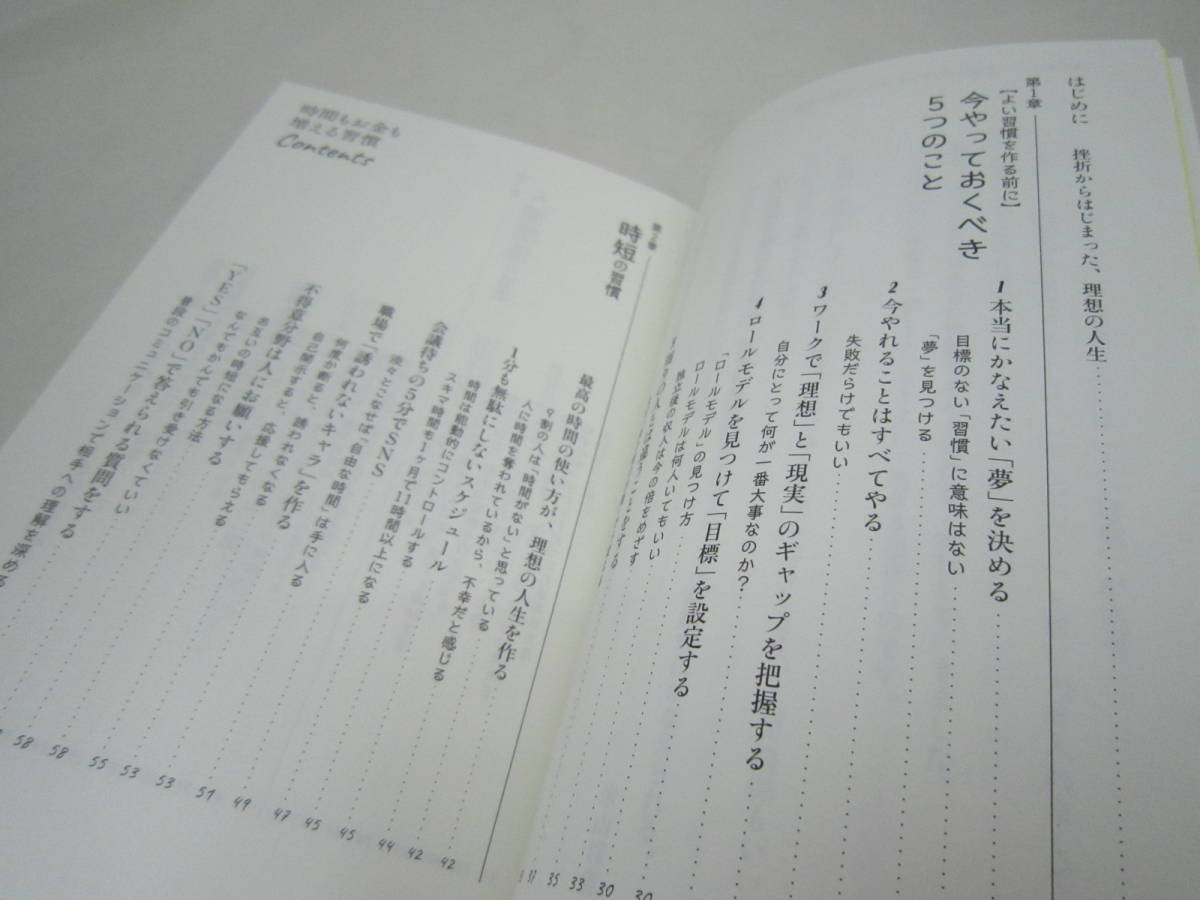 はじめに　挫折からはじまった、理想の人生
第1章
【よい習慣を作る前に】
今やっておくべき
5つのこと
1 本当にかなえたい「夢」を決める
目標のない「習慣」に意味はない
「夢」を見つける
2 今やれることはすべてやる
失敗だらけでもいい
3 ワークで「理想」と「現実」のギャップを把握する
自分にとって何が一番大事なのか?
4 ロールモデルを見つけて「目標」を設定する
「ロールモデル」の見つけ方
ロールモデルは何人いてもいい
独立後の収入は今の倍をめざす
30
30
33
35
時間もお金も
増える習慣
Contents
第2章
時短の習慣
最高の時間の使い方が、理想の人生を作る 42
9割の人は「時間がない」と思っている 42
人に時間を奪われているから、不幸だと感じる 44
1分も無駄にしないスケジュール 45
時間は能動的にコントロールする 45
スキマ時間も1ヶ月で11時間以上になる 47
会議待ちの5分でSNS 49
淡々とこなせば「自由な時間」は手に入る 51
職場で「誘われないキャラ」を作る 53
何度か断ると、誘われなくなる 53
自己開示すると、応援してもらえる 55
不得意分野は人にお願いする 58
お互いの時短になる方法 58
なんでもかんでも引き受けなくていい
「YES」「NO」で答えられる質問をする
普段のコミュニケーションで相手への理解を深める